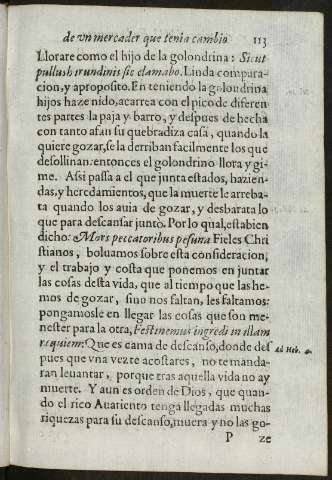 de vn mercader que tenia cambio. 113
Llorare como el hijo de la golondrina: Sicut
pullus hirundinis sic clamabo. Linda compara-
cion, y aproposito. En teniendo la golondrina
hijos haze nido, acarrea con el pico de diferen
tes partes la paja y barro, y despues de hecha
con tanto afan su quebradiza casa, quando la
quiere gozar, se la derriban facilmente los que
desollinan: entonces el golondrino llora y gi-
me. Assi passa a el que junta estados, hazien-
das, y heredamientos, que la muerte le arreba-
ta quando los auia de gozar, y desbarata lo
que para descansar juntò. Por lo qual, està bien
dicho: Mors peccatoribus pesima. Fieles Chri
stianos, boluamos sobre esta consideracion,
y el trabajo y costa que ponemos en juntar
las cosas desta vida, que al tiempo que las he-
mos de gozar, sino nos faltan, les faltamos:
pongamosle en llegar las cosas que son me-
nester para la otra, Festinemus ingredi in illam
requiem: Que es cama de descanso, donde des
pues que vna vezte acostares, no te manda-
ran leuantar, porque tras aquella vida no ay
muerte. Y aun es orden de Dios, que quan-
do el rico Auariento tenga llegadas muchas
riquezas para su descanso, muera y no las go-
P ze
Ad Heb. 4.